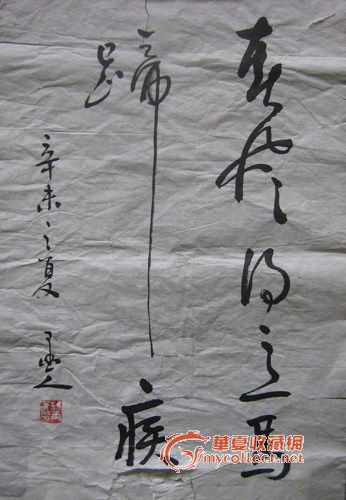 春風得意馬
蹄疾
辛未之夏
華夏收藏網
mycollect.net